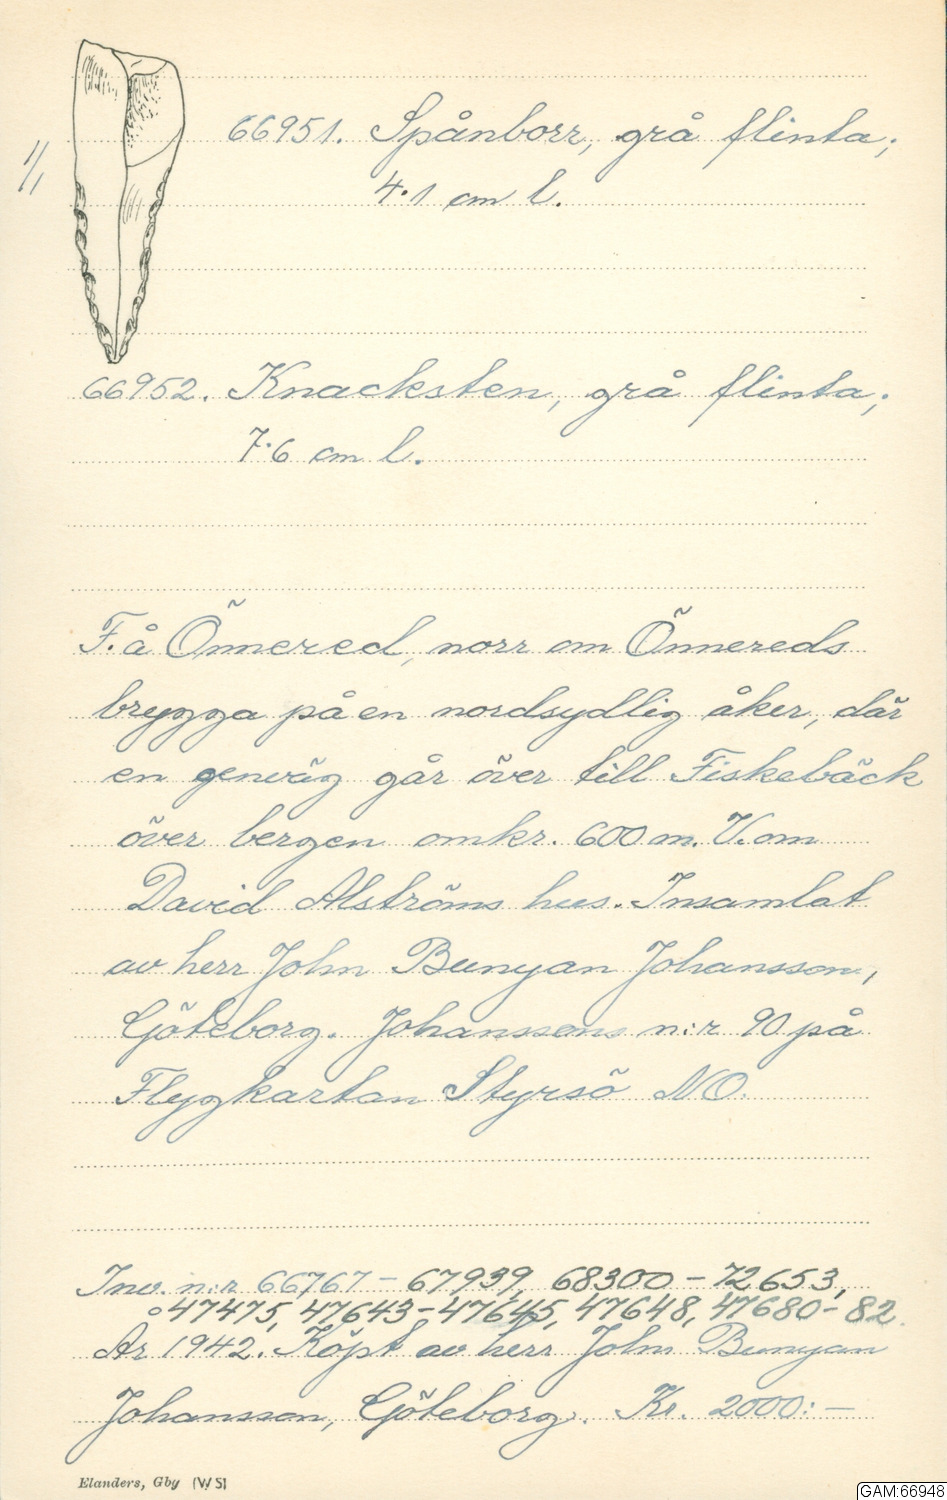 66951. Spånborr, grå flinta;
1/1
4·1 cm l.
66952. Knacksten, grå flinta;
7·6 cm l.
F. å Önnered, norr om Önnereds
brygga på en nordsydlig åker, där
en genväg går över till Fiskebäck
över bergen omkr. 600 m. V. om
David Alströms hus. Insamlat
av herr John Bunyan Johansson,
Göteborg. Johanssons n:r 90 på
Flygkartan Styrsö NO.
Inv. n:r 66767 - 67939, 68300 - 72653,
47475, 47643-47645, 47648, 47680-82.
År 1942. Köpt av herr John Bunyan
Johansson, Göteborg. Kr. 2000:—
Elanders, Gby (WS)
GAM:66948